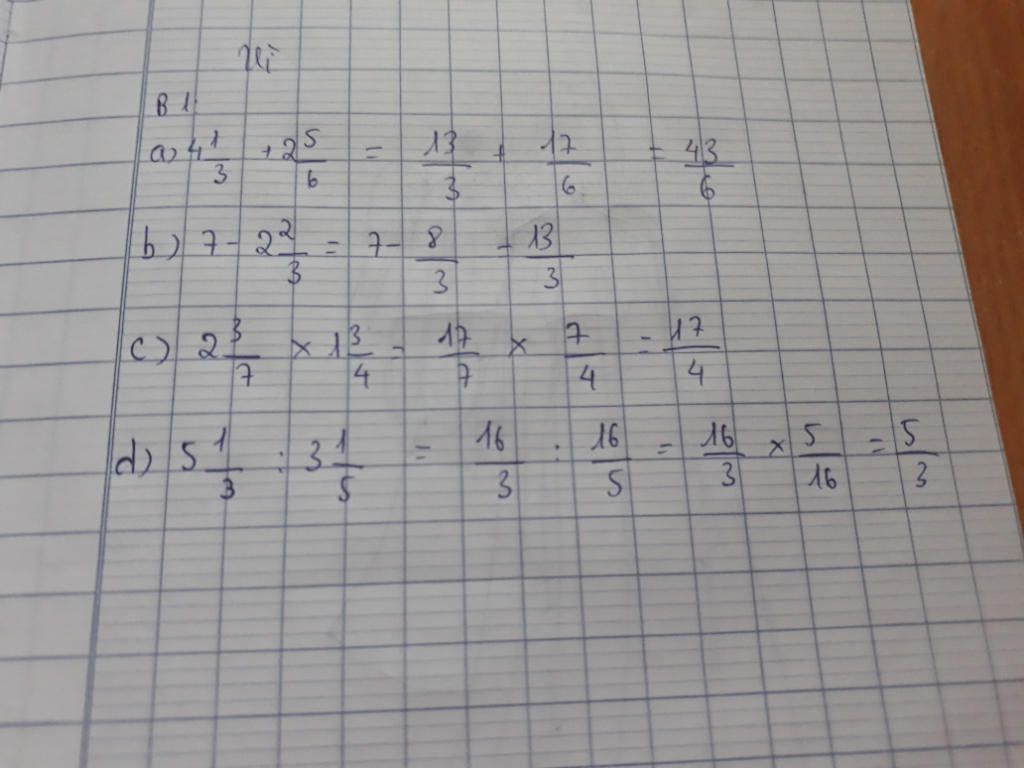 B 1
a) 4 1/3 + 2 5/6 = 13/3 + 17/6 = 43/6
b) 7 - 2 2/3 = 7 - 8/3 = 13/3
c) 2 3/7 × 1 3/4 = 17/7 × 7/4 = 17/4
d) 5 1/3 : 3 1/5 = 16/3 : 16/5 = 16/3 × 5/16 = 5/3